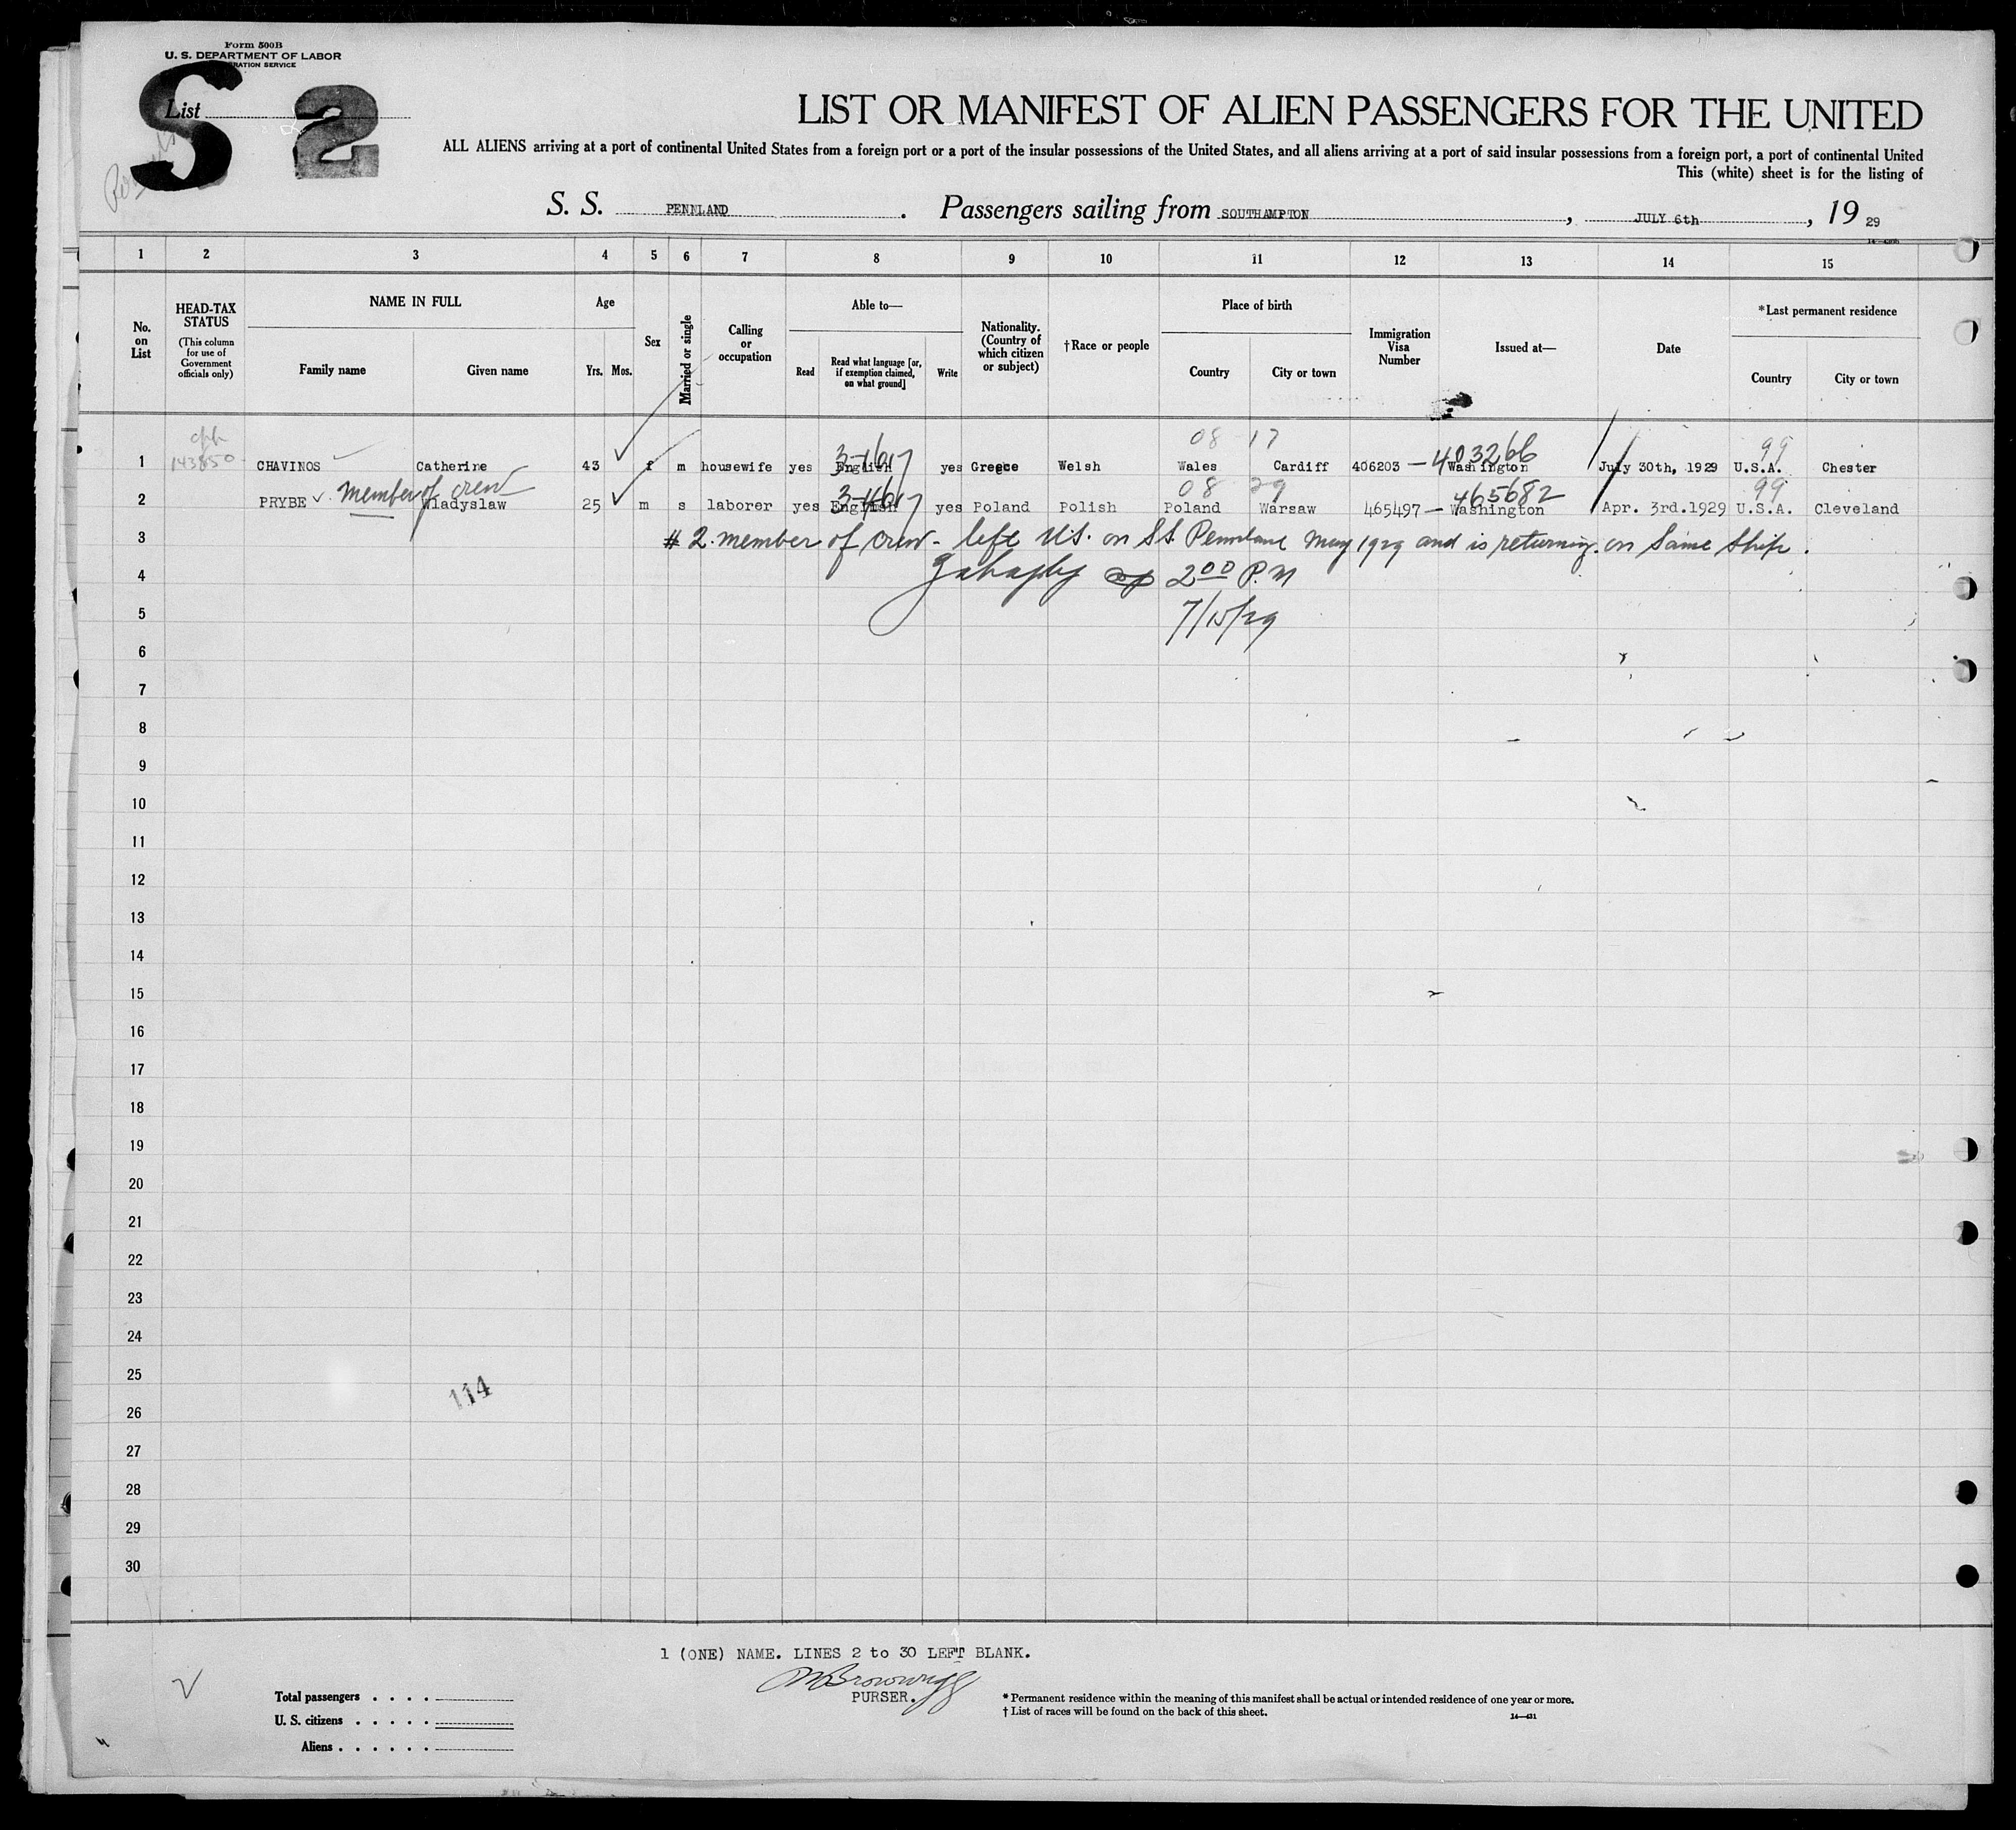 Form 500B
U. S. DEPARTMENT OF LABOR
RATION SERVICE
S 2
List
LIST OR MANIFEST OF ALIEN PASSENGERS FOR THE UNITED
ALL ALIENS arriving at a port of continental United States from a foreign port or a port of the insular possessions of the United States, and all aliens arriving at a port of said insular possessions from a foreign port, a port of continental United
This (white) sheet is for the listing of
S. S. PENNLAND. Passengers sailing from SOUTHAMPTON, JULY 6th, 19 29
1 2 3 4 5 6 7 8 9 10 11 12 13 14 15
No. on List
HEAD-TAX STATUS (This column for use of Government officials only)
NAME IN FULL
Family name Given name
Age
Yrs. Mos.
Sex
Married or single
Calling or occupation
Able to—
Read Read what language [or, if exemption claimed, on what ground] Write
Nationality. (Country of which citizen or subject)
†Race or people
Place of birth
Country City or town
Immigration Visa Number
Issued at—
Date
*Last permanent residence
Country City or town
08 17 403266 99
1 143850 CHAVINOS Catherine 43 f m housewife yes English yes Greece Welsh Wales Cardiff 406203 — Washington July 30th, 1929 U.S.A. Chester
member of crew 08 29 465682 99
2 PRYBE Wladyslaw 25 m s laborer yes English yes Poland Polish Poland Warsaw 465497 — Washington Apr. 3rd.1929 U.S.A. Cleveland
3 # 2. member of crew - left U.S. on SS Pennland May 1929 and is returning on same ship.
4 2 00 P.M
5 7/15/29
6
7
8
9
10
11
12
13
14
15
16
17
18
19
20
21
22
23
24
25
114
26
27
28
29
30
1 (ONE) NAME. LINES 2 to 30 LEFT BLANK.
PURSER.
Total passengers . . . .
U. S. citizens . . . . .
Aliens . . . . . .
* Permanent residence within the meaning of this manifest shall be actual or intended residence of one year or more.
† List of races will be found on the back of this sheet.
14—431